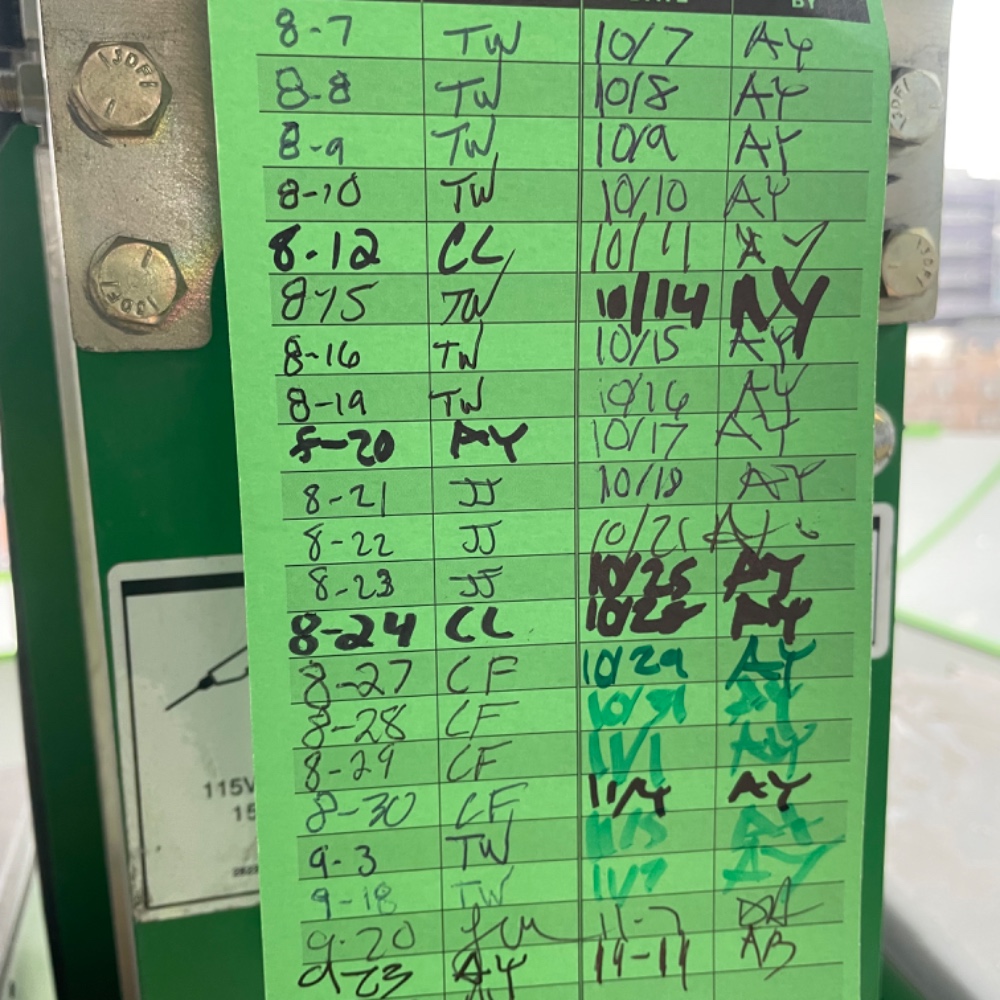 BY
8-7 TW 10/7 AY
8-8 TW 10/8 AY
8-9 TW 10/9 AY
8-10 TW 10/10 AY
8-12 CL 10/11 AY
8-15 TW 10/14 AY
8-16 TW 10/15 AY
8-19 TW 10/16 AY
8-20 AY 10/17 AY
8-21 JJ 10/18 AY
8-22 JJ 10/21 AY
8-23 JJ 10/25 AY
8-24 CL AY
8-27 CF 10/29 AY
8-28 CF 10/31 AY
8-29 CF 11/1 AY
8-30 CF 11/4 AY
9-3 TW 11/5 AY
9-18 TW 11/7 AY
9-20 11-7
9-23 AY 11-11 AB
115V
15